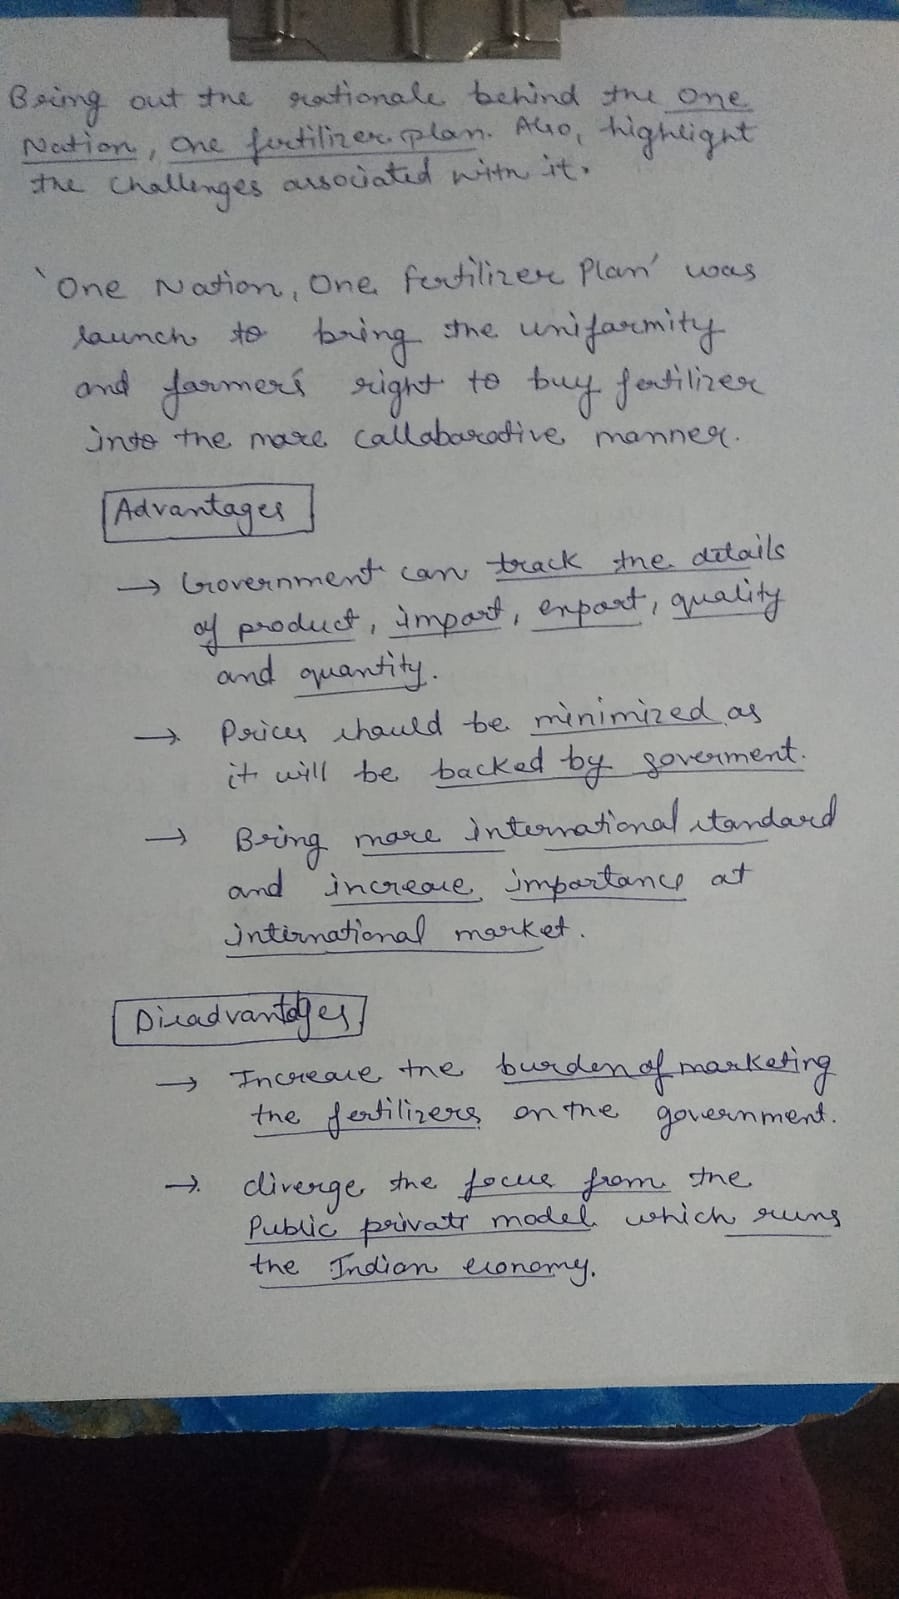 Bring out the rationale behind the One
Nation, One fertilizer plan. Also, highlight
the challenges associated with it.
'One Nation, One Fertilizer Plan' was
launch to bring the uniformity
and farmer's right to buy fertilizer
into the more collaborative manner.
Advantages
→ Government can track the details
of product, import, export, quality
and quantity.
→ Prices should be minimized as
it will be backed by goverment.
→ Bring more international standard
and increase importance at
international market.
Disadvantages
→ Increase the burden of marketing
the fertilizers on the government.
→ diverge the focus from the
Public private model which runs
the Indian economy.